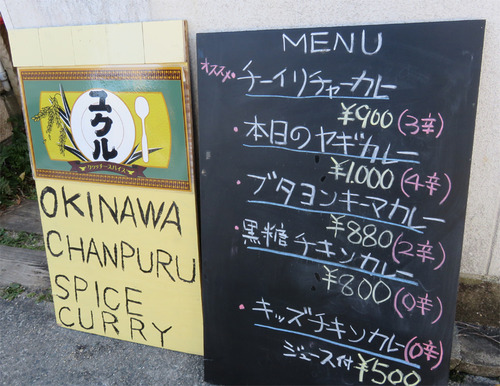 ユクル
クッチーナスパイス
OKINAWA
CHANPURU
SPICE
CURRY
MENU
オススメ・チーイリチャーカレー
¥900(3辛)
・本日のヤギカレー
¥1.000(4辛)
・ブタヨンキーマカレー
¥880(2辛)
・黒糖チキンカレー
¥800(0辛)
・キッズチキンカレー(0辛)
ジュース付¥500